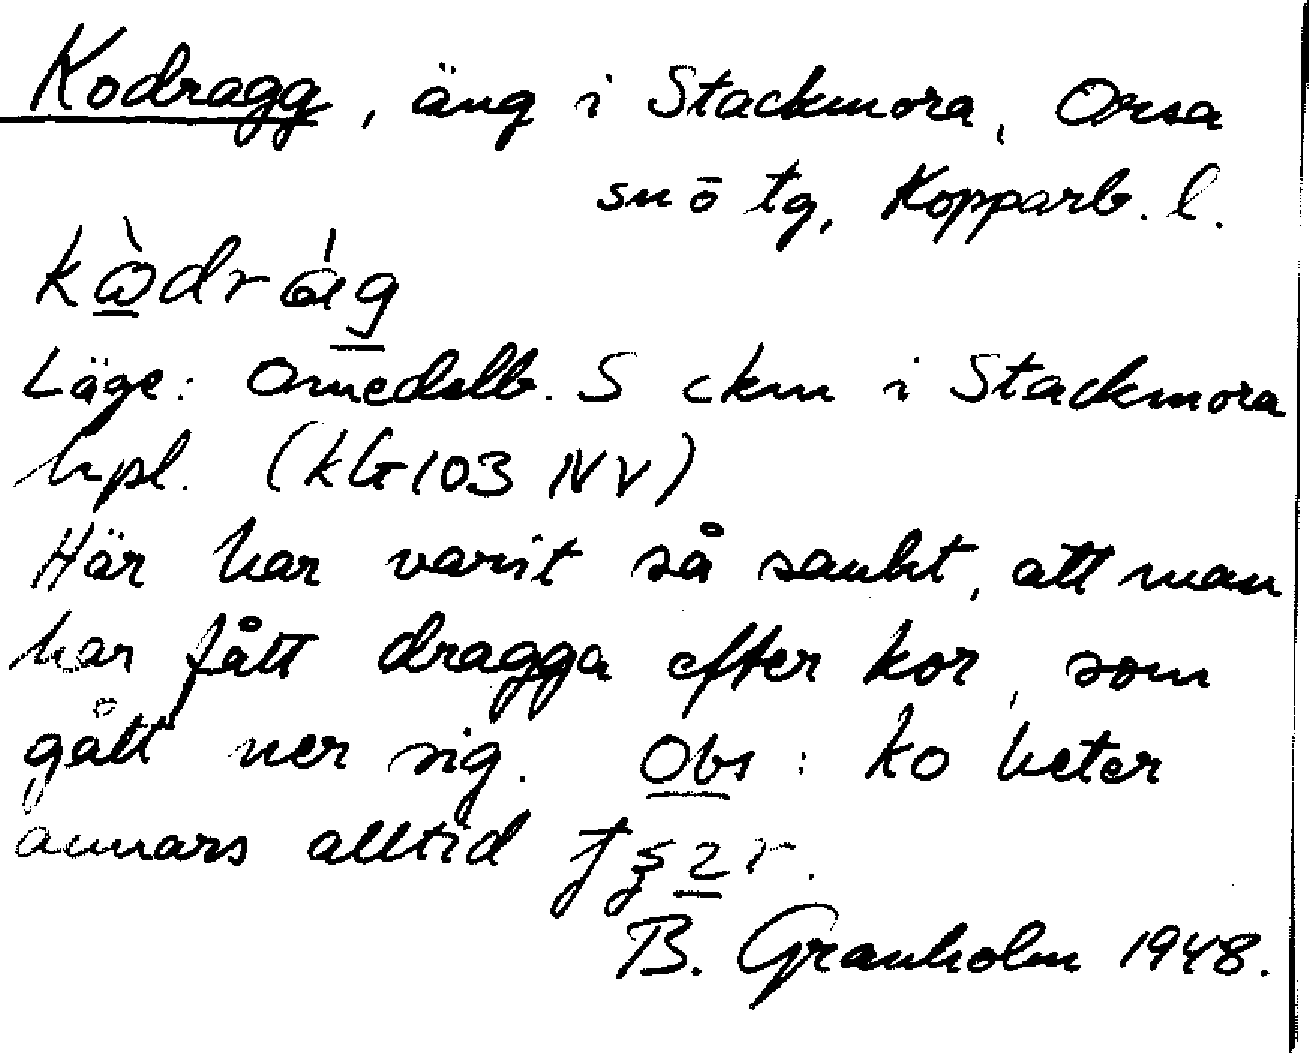 Kodragg, äng i Stackmora, Orsa
sn ö tg, Kopparb. l.
Läge: Omedelb. S ckm i Stackmora
bpl. (kbl 103 NV)
Här har varit så sankt, att man
har fått dragga efter kor, som
gått ner sig. Obs: ko heter
annars alltid
B. Granholm 1948.